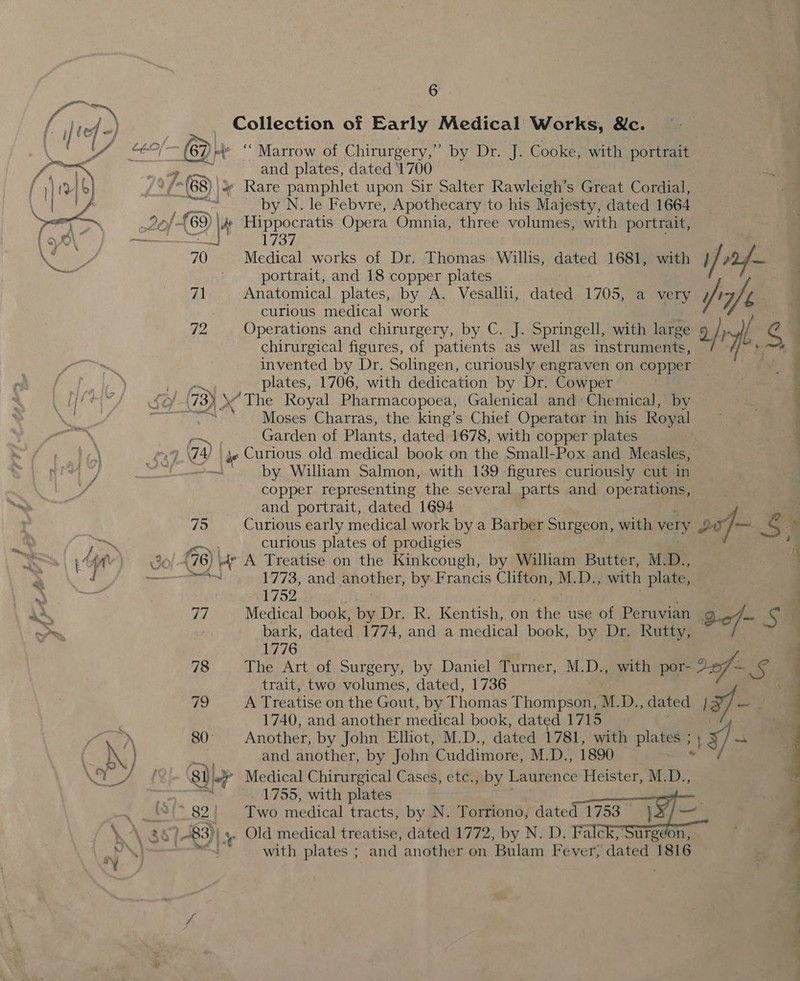 6
Collection of Early Medical Works, &c.
67 “ Marrow of Chirurgery,” by Dr. J. Cooke, with portrait
and plates, dated 1700
68 Rare pamphlet upon Sir Salter Rawleigh’s Great Cordial,
by N. le Febvre, Apothecary to his Majesty, dated 1664
69 Hippocratis Opera Omnia, three volumes, with portrait,
1737
70 Medical works of Dr. Thomas Willis, dated 1681, with
portrait, and 18 copper plates
71 Anatomical plates, by A. Vesallii, dated 1705, a very
curious medical work
72 Operations and chirurgery, by C. J. Springell, with large
chirurgical figures, of patients as well as instruments,
invented by Dr. Solingen, curiously engraven on copper
plates, 1706, with dedication by Dr. Cowper
73 The Royal Pharmacopoea, Galenical and Chemical, by
Moses Charras, the king’s Chief Operator in his Royal
Garden of Plants, dated 1678, with copper plates
74 Curious old medical book on the Small-Pox and Measles,
by William Salmon, with 139 figures curiously cut in
copper representing the several parts and operations,
and portrait, dated 1694
75 Curious early medical work by a Barber Surgeon, with very 20/- S
curious plates of prodigies
30/- 76 A Treatise on the Kinkcough, by William Butter, M.D.,
1773, and another, by Francis Clifton, M.D., with plate,
1752
77 Medical book, by Dr. R. Kentish, on the use of Peruvian S
bark, dated 1774, and a medical book, by Dr. Rutty,
1776
78 The Art of Surgery, by Daniel Turner, M.D., with por- S
trait, two volumes, dated, 1736
79 A Treatise on the Gout, by Thomas Thompson, M.D., dated
1740, and another medical book, dated 1715
80 Another, by John Elliot, M.D., dated 1781, with plates ;
and another, by John Cuddimore, M.D., 1890
81 Medical Chirurgical Cases, etc., by Laurence Heister, M.D.,
1755, with plates
82 Two medical tracts, by N. Torriono, dated 1753
83 Old medical treatise, dated 1772, by N. D. Falck, Surgeon,
with plates ; and another on Bulam Fever, dated 1816